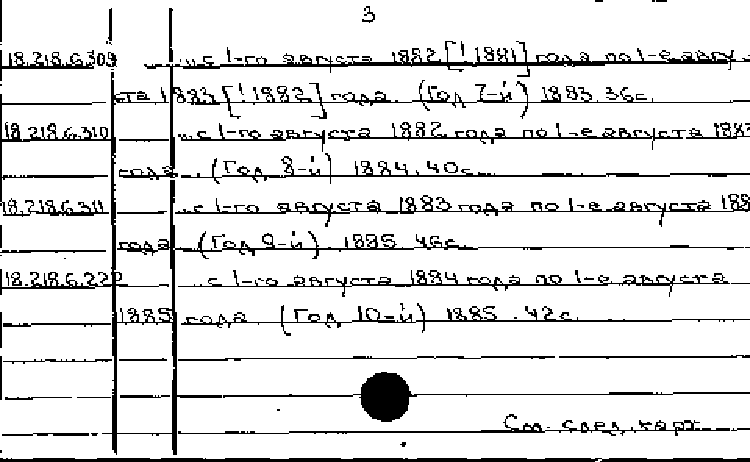 3
18.218.6.309 ...с 1-го августа 1882 [! 1881] года по 1-е авгу-
ста 1883 [! 1882] года. (Год 7-й) 1883. 36с.
18.218.6.310 ...с 1-го августа 1882 года по 1-е августа 1883
года. (Год 8-й) 1884. 40с.
18.218.6.311 ...с 1-го августа 1883 года по 1-е августа 188
года (Год 9-й) 1885. 46с.
18.218.6.222 ...с 1-го августа 1884 года по 1-е августа
1885 года. (Год 10-й) 1885. 42с.
См. след. карт.